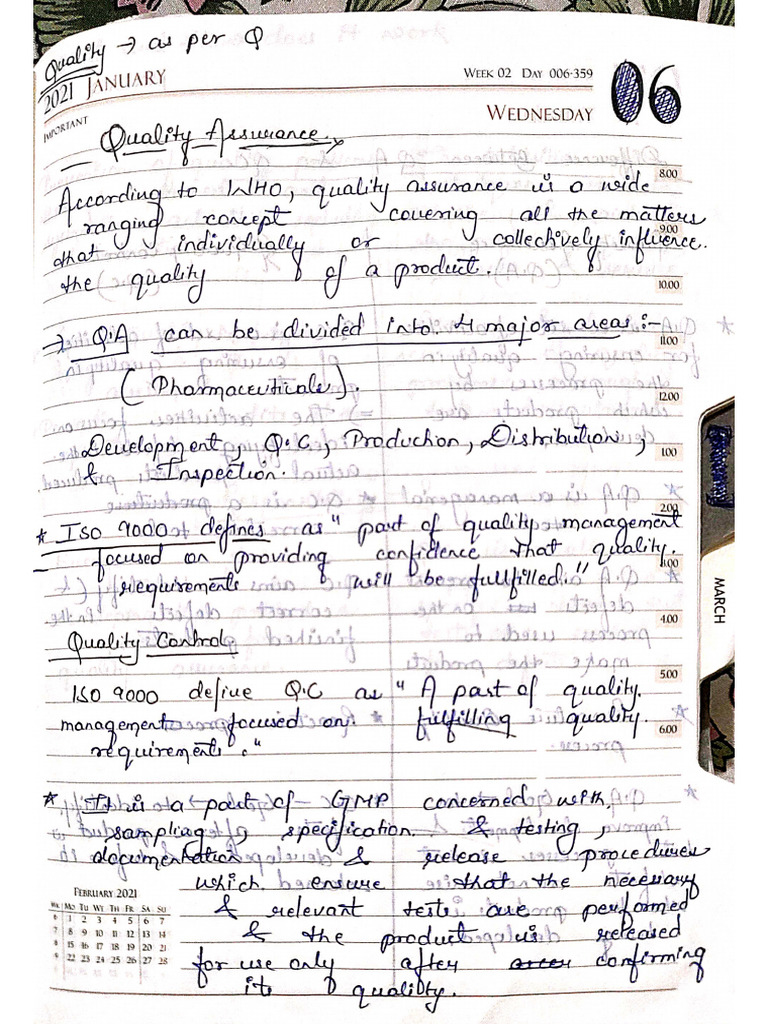 Quality → as per Q
2021 JANUARY
WEEK 02 DAY 006-359
06
IMPORTANT
WEDNESDAY
Quality Assurance
8.00
According to WHO, quality assurance is a wide
ranging concept covering all the matters
9.00
that individually or collectively influence
the quality of a product.
10.00
→ Q.A can be divided into 4 major areas :-
11.00
(Pharmaceuticals).
12.00
Development, Q.C, Production, Distribution,
1.00
& Inspection.
2.00
* ISO 9000 defines as " part of quality management
focused on providing confidence that quality
3.00
requirements will be fullfilled."
4.00
Quality Control
5.00
ISO 9000 define Q.C as " A part of quality
management focused on fulfilling quality
6.00
requirements."
* It is a part of GMP concerned with
sampling, specification & testing,
documentation & release procedures
which ensure that the necessary
& relevant tests are performed
& the product is released
for use only after confirming
its quality.
FEBRUARY 2021
WK MO TU WE TH FR SA SU
6 1 2 3 4 5 6 7
7 8 9 10 11 12 13 14
8 15 16 17 18 19 20 21
9 22 23 24 25 26 27 28
MARCH